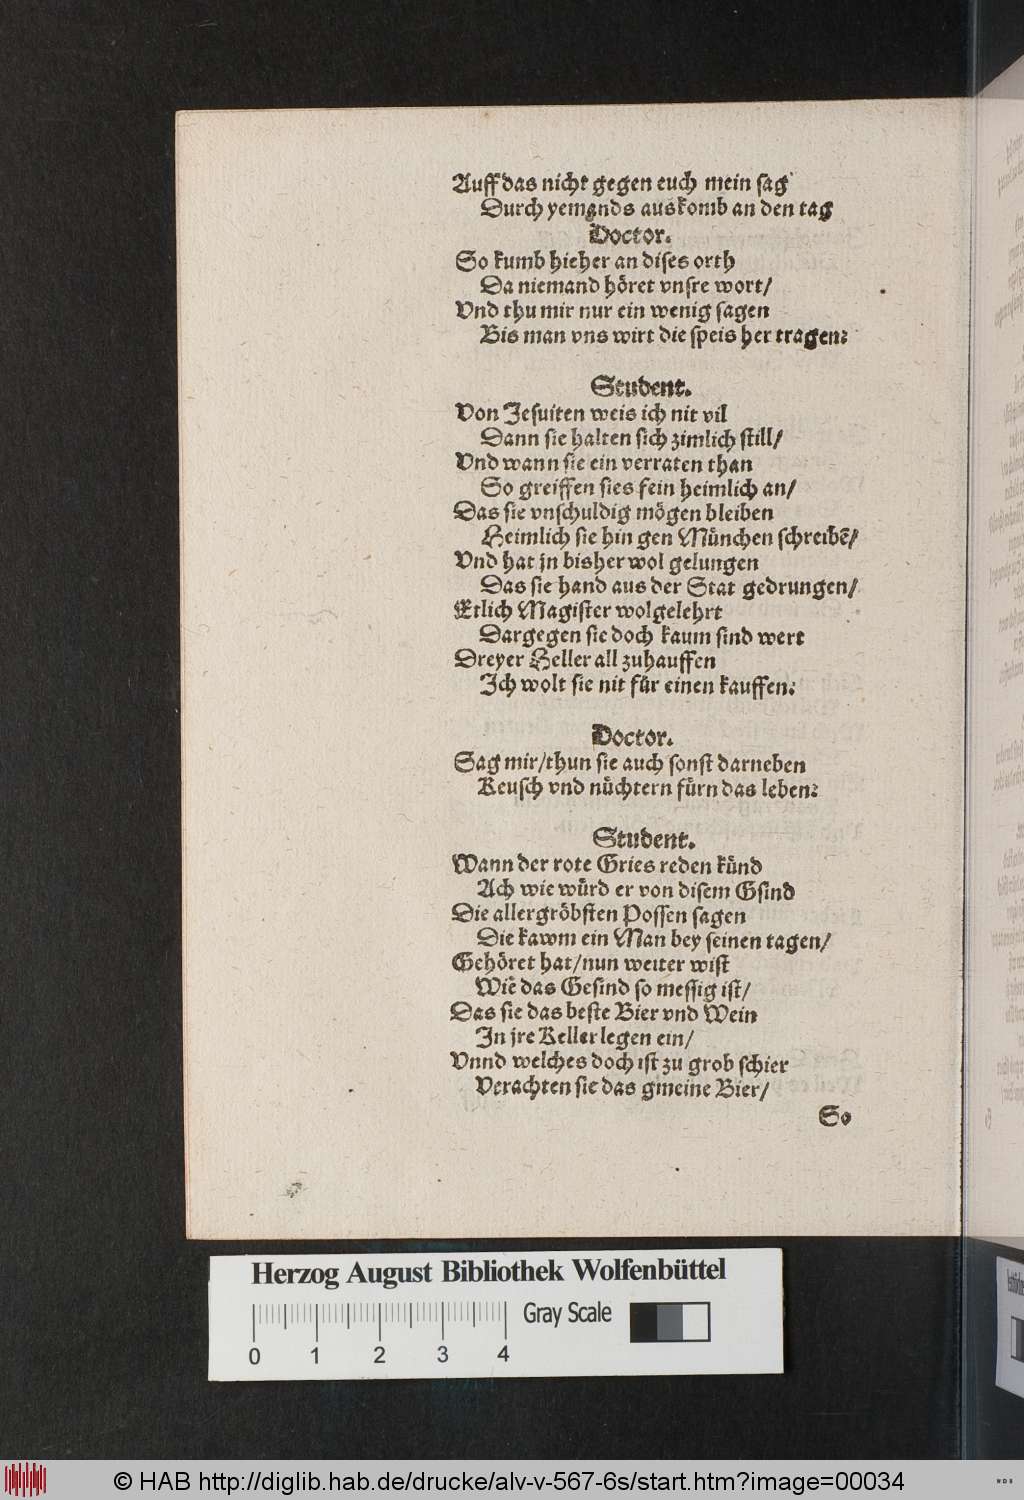 Auff das nicht gegen euch mein sag
Durch yemands auskomb an den tag
Doctor.
So kumb hieher an dises orth
Da niemand höret vnsre wort/
Vnd thu mir nur ein wenig sagen
Bis man vns wirt die speis her tragen:
Student.
Von Jesuiten weis ich nit vil
Dann sie halten sich zimlich still/
Vnd wann sie ein verraten than
So greiffen sies fein heimlich an/
Das sie vnschuldig mögen bleiben
Heimlich sie hin gen München schreibē/
Vnd hat jn bisher wol gelungen
Das sie hand aus der Stat gedrungen/
Etlich Magister wolgelehrt
Dargegen sie doch kaum sind wert
Dreyer Heller all zuhauffen
Ich wolt sie nit für einen kauffen:
Doctor.
Sag mir/thun sie auch sonst darneben
Keusch vnd nüchtern fürn das leben:
Student.
Wann der rote Gries reden künd
Ach wie würd er von disem Gsind
Die allergröbsten Possen sagen
Die kawm ein Man bey seinen tagen/
Gehöret hat/nun weiter wist
Wie das Gesind so messig ist/
Das sie das beste Bier vnd Wein
In jre Keller legen ein/
Vnnd welches doch ist zu grob schier
Verachten sie das gmeine Bier/
So
Herzog August Bibliothek Wolfenbüttel
Gray Scale
0 1 2 3 4
© HAB http://diglib.hab.de/drucke/alv-v-567-6s/start.htm?image=00034